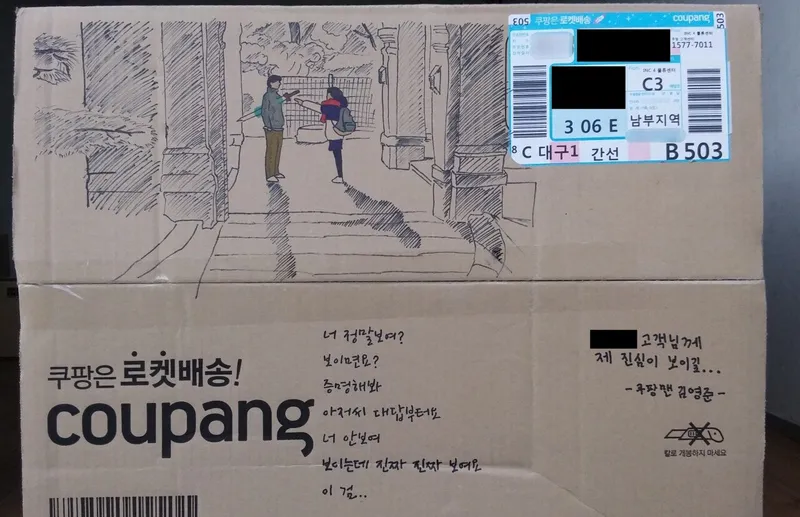 503
쿠팡은 로켓배송
coupang
503
1577-7011
C3
3 06 E
남부지역
8 C 대구1 간선 B 503
너 정말보여?
보이면요?
증명해봐
아저씨 대답부터요
너 안보여
보이는데 진짜 진짜 보여요
이 검..
고객님께
제 진심이 보이길...
-쿠팡맨 김영준-
칼로 개봉하지 마세요
쿠팡은 로켓배송!
coupang